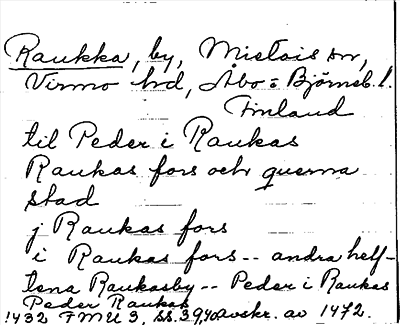 Raukka, by, Mietois sn,
Virmo hrd, Åbo = Björneb. l.
Finland
til Peder i Raukas
Raukas fors och querna
stad
j Raukas fors
i Raukas fors -- andra helf-
tena Raukasby -- Peder i Raukas
Peder Raukas
1432 FMU 3, ss. 39, 40 avskr. av 1472.